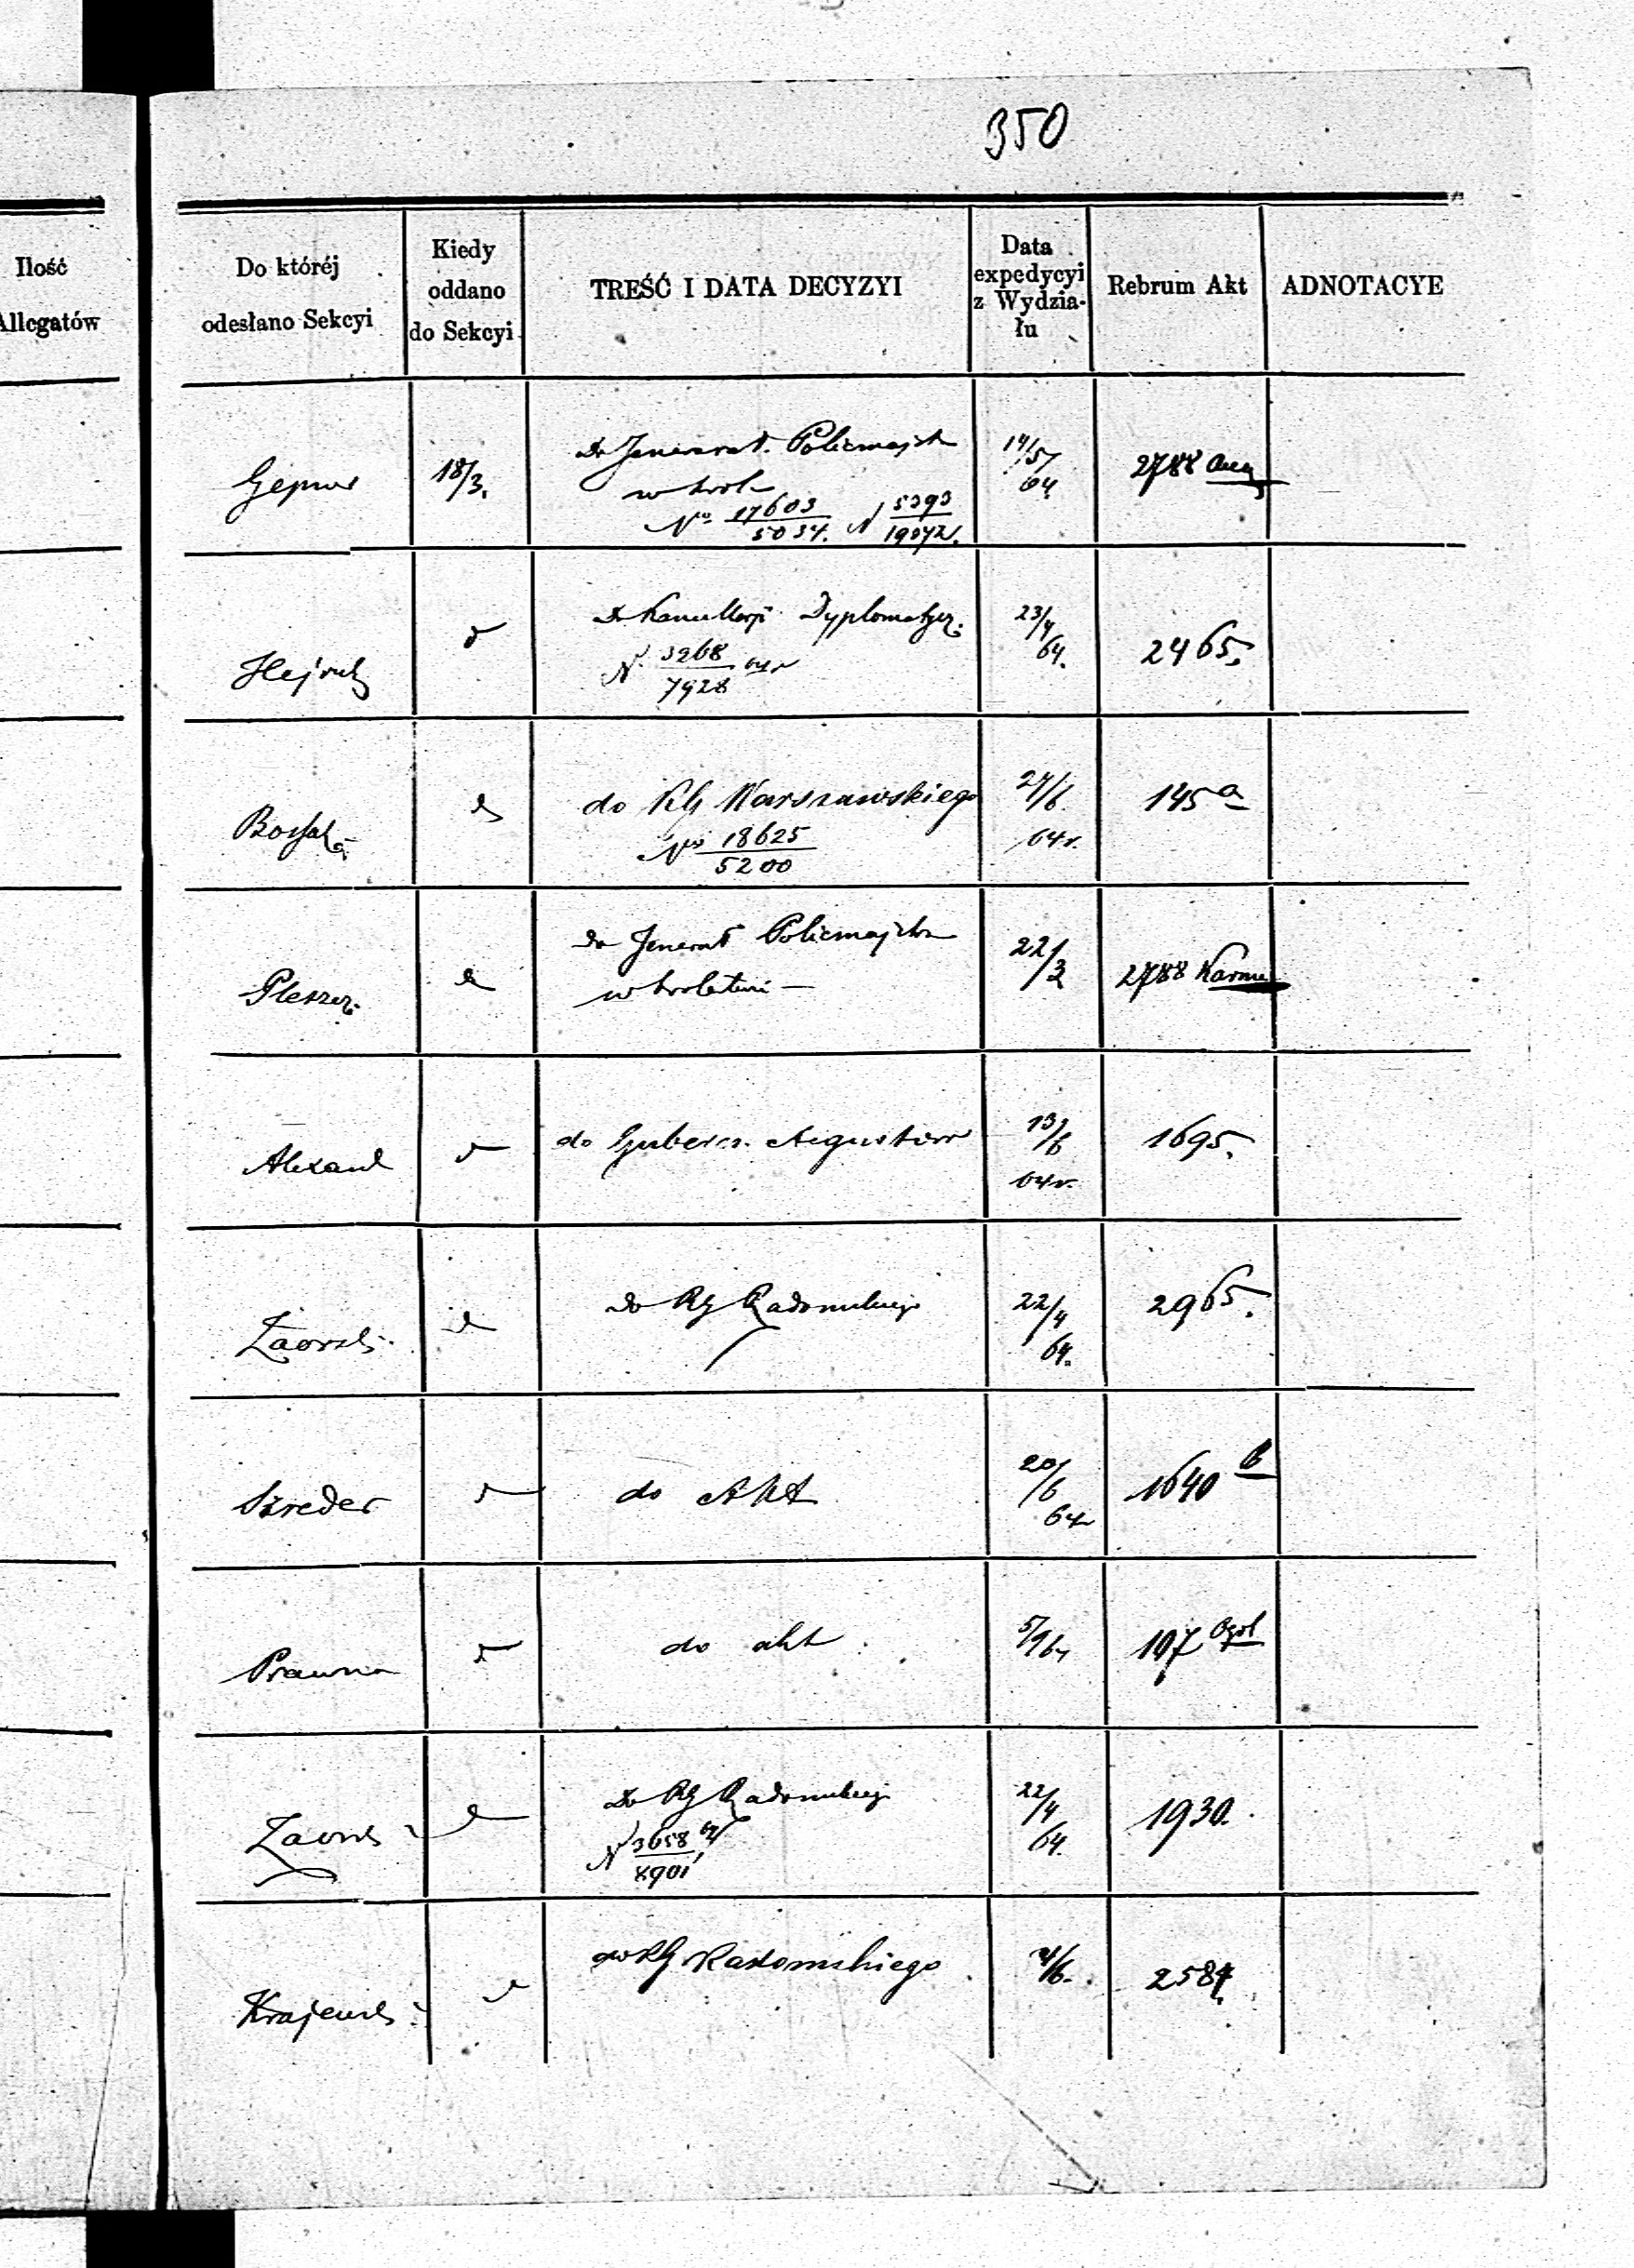 350
Ilość
Allegatów
Do któréj
odesłano Sekcyi
Kiedy
oddano
do Sekcyi
TREŚĆ I DATA DECYZYI
Data
expedycyi
z Wydzia-
łu
Rebrum Akt
ADNOTACYE
18/3.
Do Jenerał. Policmajstr
w krol
No 17603/5034. N 5393/19072.
14/5
64
2788 Aug
Do Kancellarji Dyplomatycz.
N 3268/7928
23/4
64.
2465.
do RG Warszawskiego
No 18625/5200
24/6
64r.
145 a
Pleszcz.
do Jenerał Policmajstra
w krolestwie —
22/3
2788 Karne
Alexand
do Gubern. Augustow
13/6
64r.
1695.
Zaorsk
do RG Radomskiego
22/4
64.
2965.
Szreder
do Akt
20/6
64
1640 b
Prawna
do akt
5/9 64
107 Ogól
Zaors
Do RG Radomskiego
N 3658/8901
22/4
64.
1930.
Krajews
do RG Radomskiego
4/6.
2584